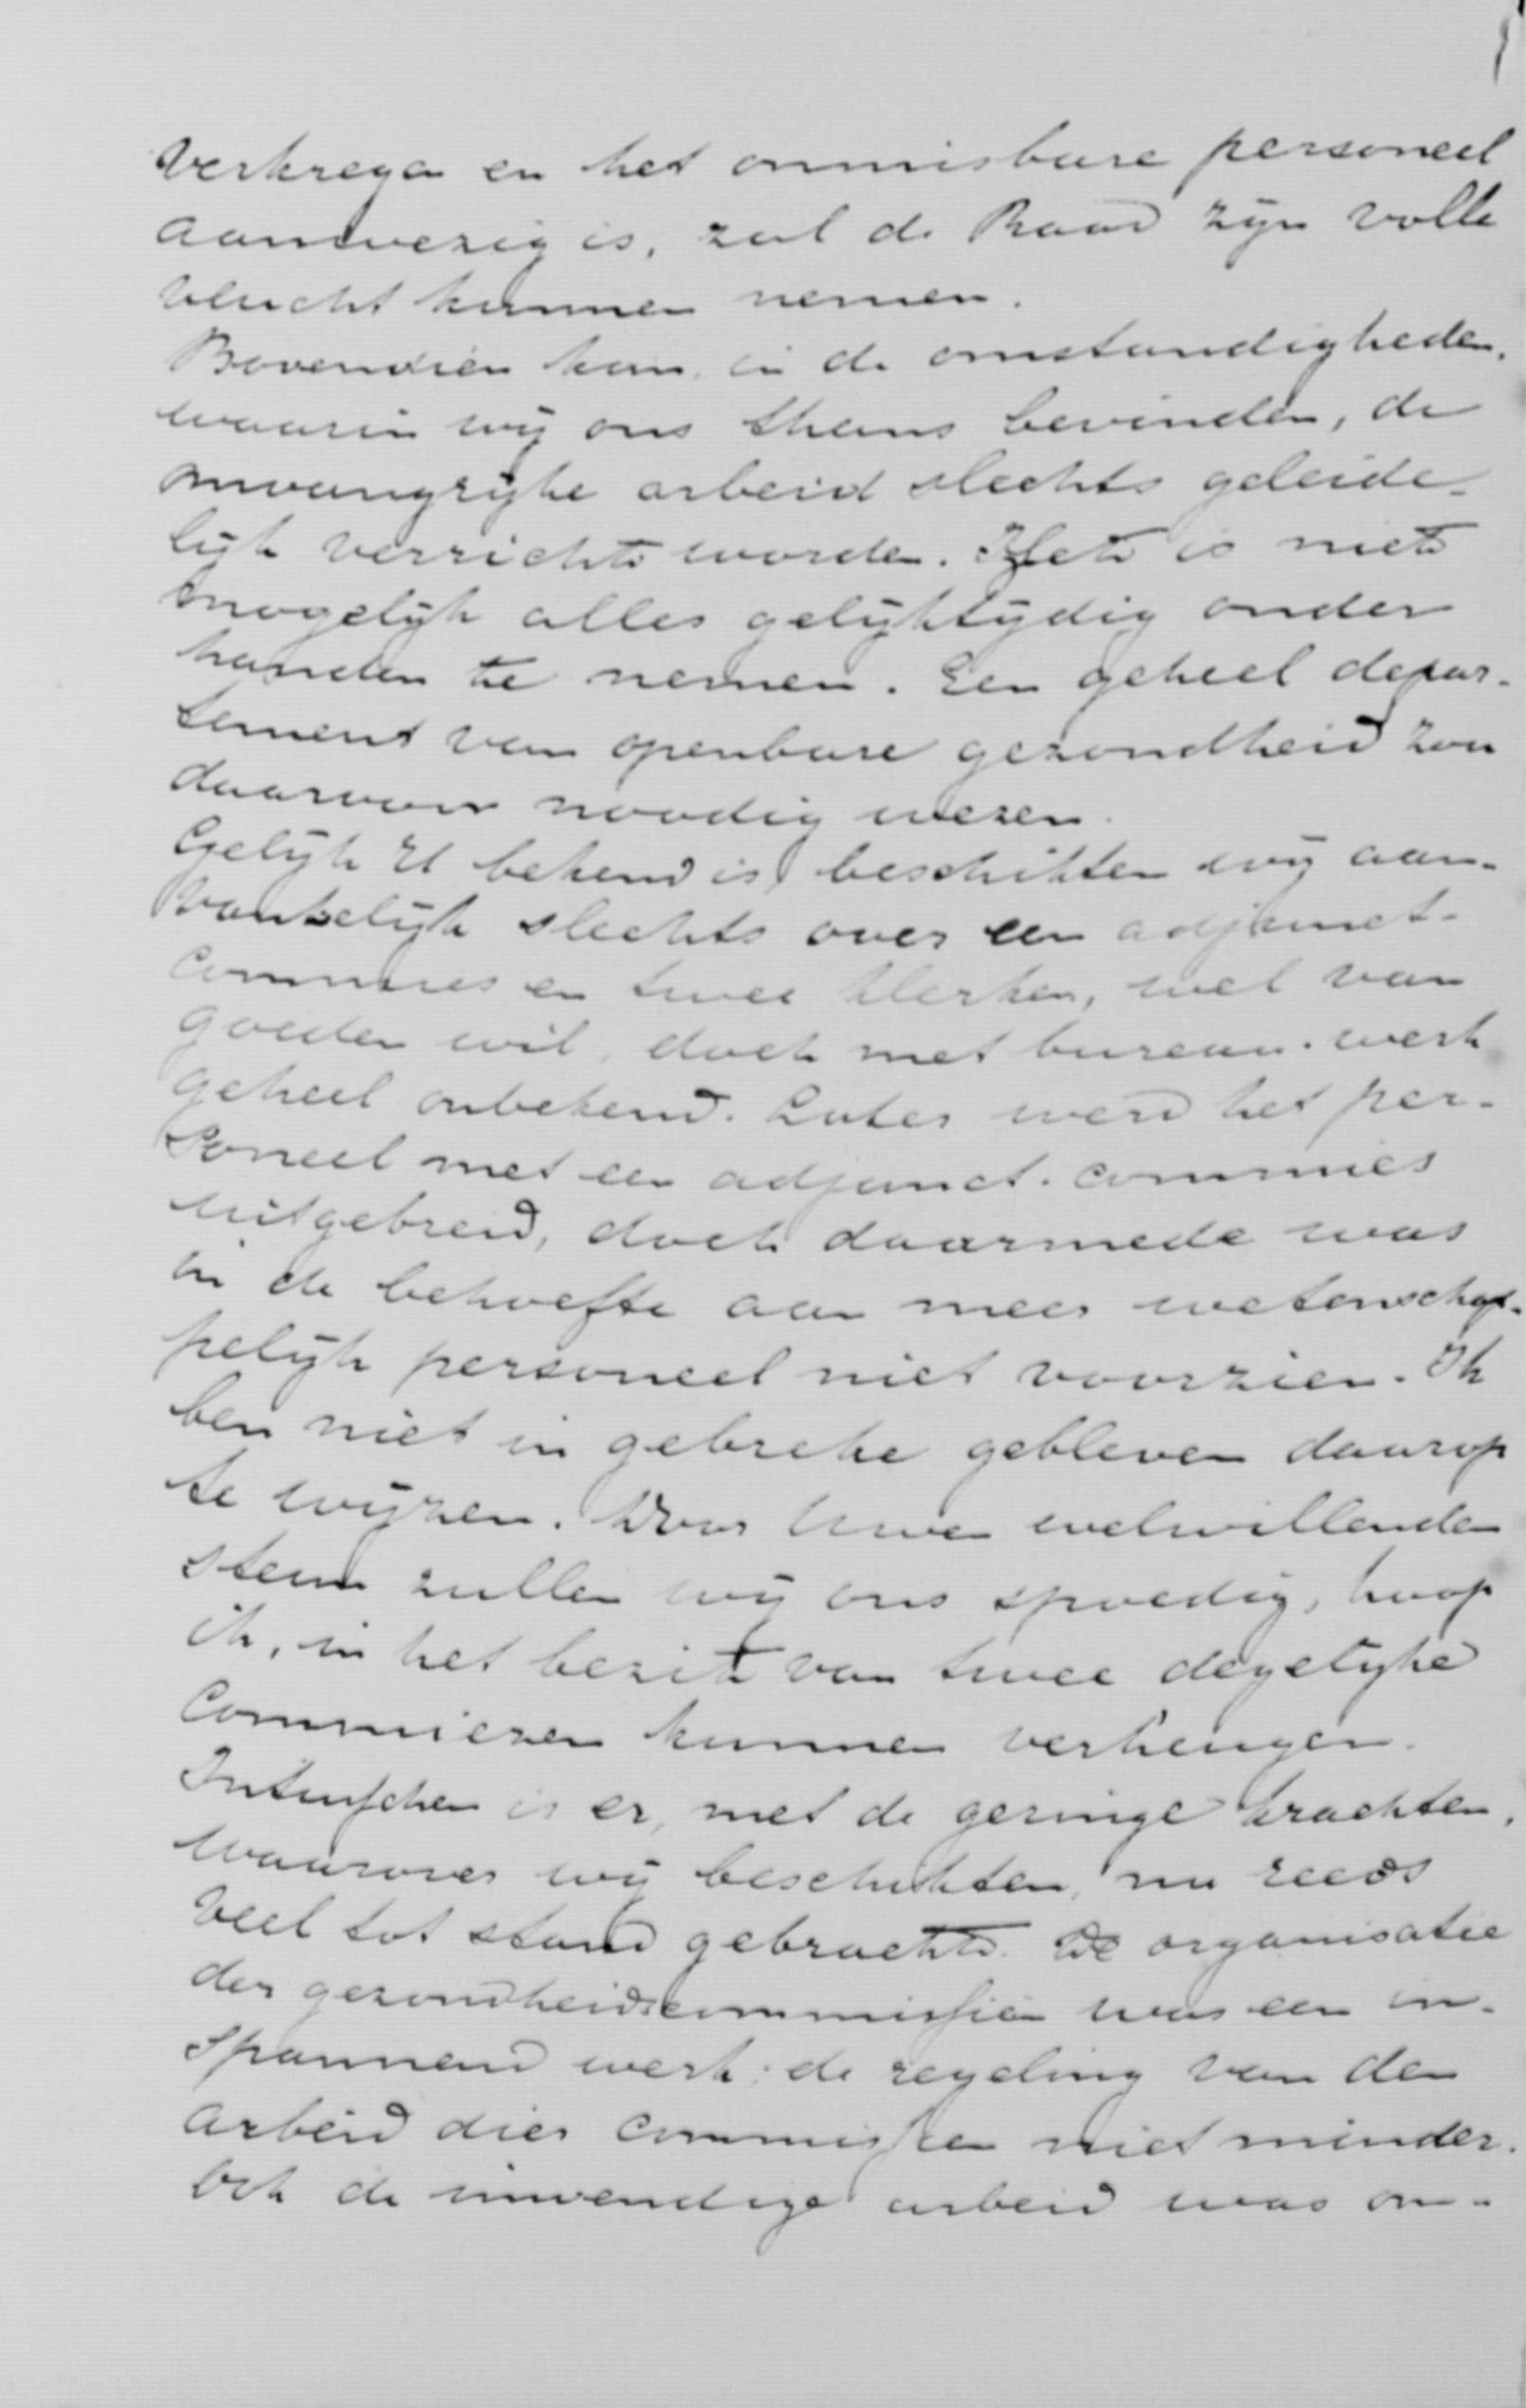 verkregen en het onmisbare personeel
aanwezig is, zal de Raad zijn volle
vlucht kunnen nemen.
Bovendien kan, in de omstandigheden,
waarin wij ons thans bevinden, de
omvangrijke arbeid slechts geleide-
lijk verricht worden. Het is niet
mogelijk alles gelijktijdig onder
handen te nemen. Een geheel depar-
tement van openbare gezondheid zou
daarvoor noodig wezen.
Gelijk U bekend is beschikten wij aan-
vankelijk slechts over een adjunct-
commies en twee klerken, wel van
goeden wil, doch met bureau-werk
geheel onbekend. Later werd het per-
soneel met een adjunct-commies
uitgebreid, doch daarmede was
in de behoefte aan meer wetenschap-
pelijk personeel niet voorzien. Ik
ben niet in gebreke gebleven daarop
te wijzen. Door Uwen welwillenden
steun zullen wij ons spoedig, hoop
ik, in het bezit van twee degelijke
Commiezen kunnen verheugen.
Intusschen is er, met de geringe krachten,
waarover wij beschikten, nu reeds
veel tot stand gebracht. De organisatie
der gezondheidscommissiën was een in-
spannend werk; de regeling van den
arbeid dier commissien niet minder.
Ook de inwendige arbeid was om-